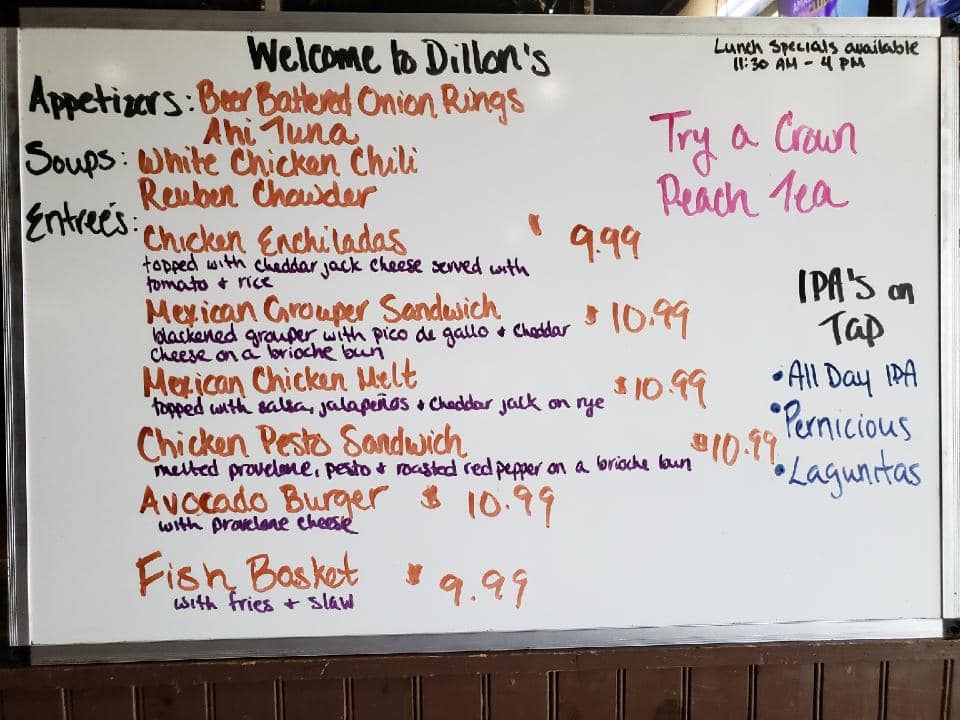 Welcome to Dillon's
Lunch Specials available
11:30 AM - 4 PM
Appetizers: Beer Battered Onion Rings
Ahi Tuna
Soups: White Chicken Chili
Reuben Chowder
Try a Crown
Peach Tea
Entree's:
Chicken Enchiladas $ 9.99
topped with cheddar jack cheese served with
tomato + rice
Mexican Grouper Sandwich $ 10.99
blackened grouper with pico de gallo + cheddar
cheese on a brioche bun
Mexican Chicken Melt $ 10.99
topped with salsa, jalapeños + cheddar jack on rye
Chicken Pesto Sandwich $10.99
melted provelone, pesto + roasted red pepper on a brioche bun
Avocado Burger $ 10.99
with provelone cheese
Fish Basket $ 9.99
with fries + slaw
IPA's on
Tap
•All Day IPA
•Pernicious
•Lagunitas